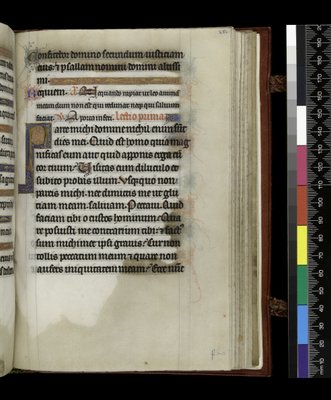 Confitebor domino secundum iusticiam
eius: et psallam nomini domini altissi
mi.
Requiem. A. Ne quando rapiat ut leo anima
meam dum non est qui redimat neqz qui saluum
faciat. A porta inferi. Lectio prima
Parce michi domine nichil enim sunt
dies mei. Quid est homo quia mag
nificas eum aut quid apponis erga eum
cor tuum. Visitas eum diluculo et
subito probas illum. Usquequo non
parcis michi nec dimittis me ut glu
ciam meam saluiam. Peccaui. Quid
faciam tibi o custos hominum. Qua
re posuisti me contrarium tibi: et factus
sum michimet ipsi grauis. Cur non
tollis peccatum meum et quare non
aufers iniquitatem meam. Ecce nunc